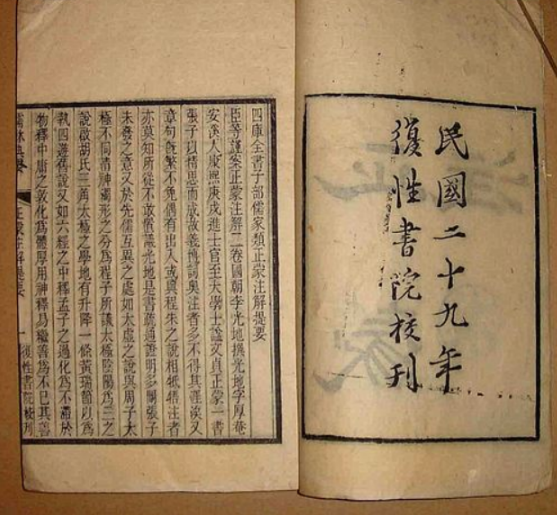 民國二十九年
復性書院校刊
四庫全書子部儒家類正蒙注解提要
臣等謹案正蒙注解二卷國朝李光地撰光地字厚菴
安溪人康熙庚戌進士官至大學士諡文貞正蒙一書
張子以精思而成故義博詞奧注者多不得其涯涘又
章句既繁不免偶有出入或與程朱之說相牴牾注者
亦莫知所從不敢置議光地是書疏通證明多闡張子
未發之意又於先儒互異之處如太虛之說與周子太
極不同清神濁形之分為程子所議太極陰陽為三之
說啟胡氏三角太極之學地有升降一條黃瑞節以為
執四遊舊說又如六經之中釋孟子之過化為不滯於
物釋中庸之敦化為體厚用神釋易繼善為不已其善
儒林典要 正蒙注解提要 一 復性書院校刊